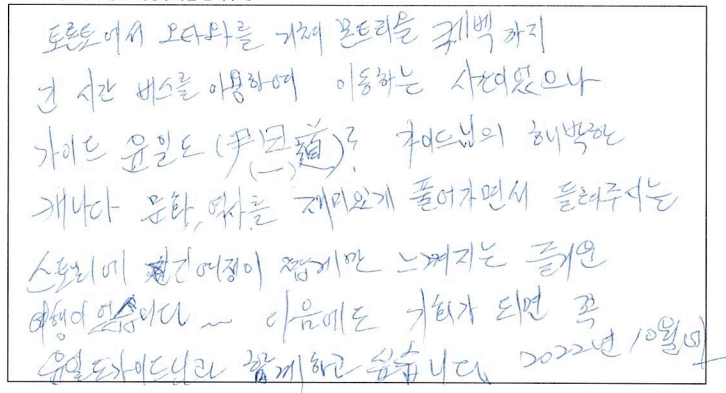 토론토에서 오타와를 거쳐 몬트리올 퀘벡까지
긴 시간 버스를 이용하여 이동하는 시간이었으나
가이드 윤일도 (尹日道) 가이드님의 해박한
캐나다 문화, 역사를 재미있게 풀어가면서 들려주시는
스토리에 긴 여정이 짧게만 느껴지는 즐거운
여행이었습니다 ~ 다음에도 기회가 되면 꼭
윤일도가이드님과 함께하고 싶습니다. 2022년 10월